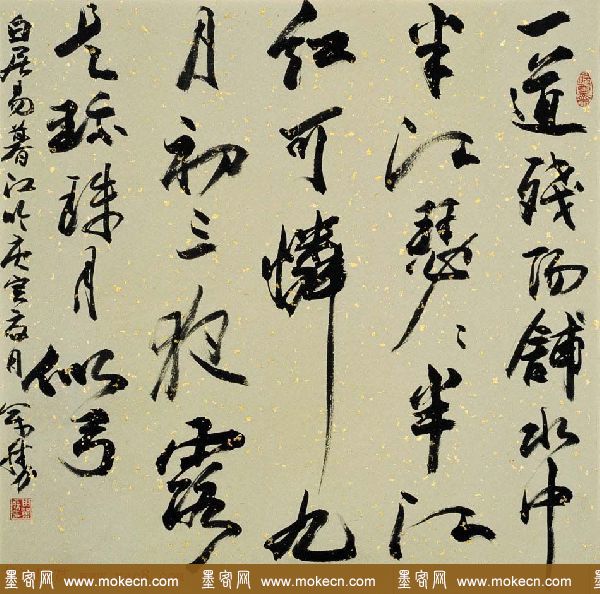 一道殘陽舖水中
半江瑟〻半江
红可憐九
月初三夜露
是珍珠月似弓
白居易暮江吟庚寅夏月
墨客网 www.mokecn.com 墨客网 www.mokecn.com 墨客网 www.mokecn.com